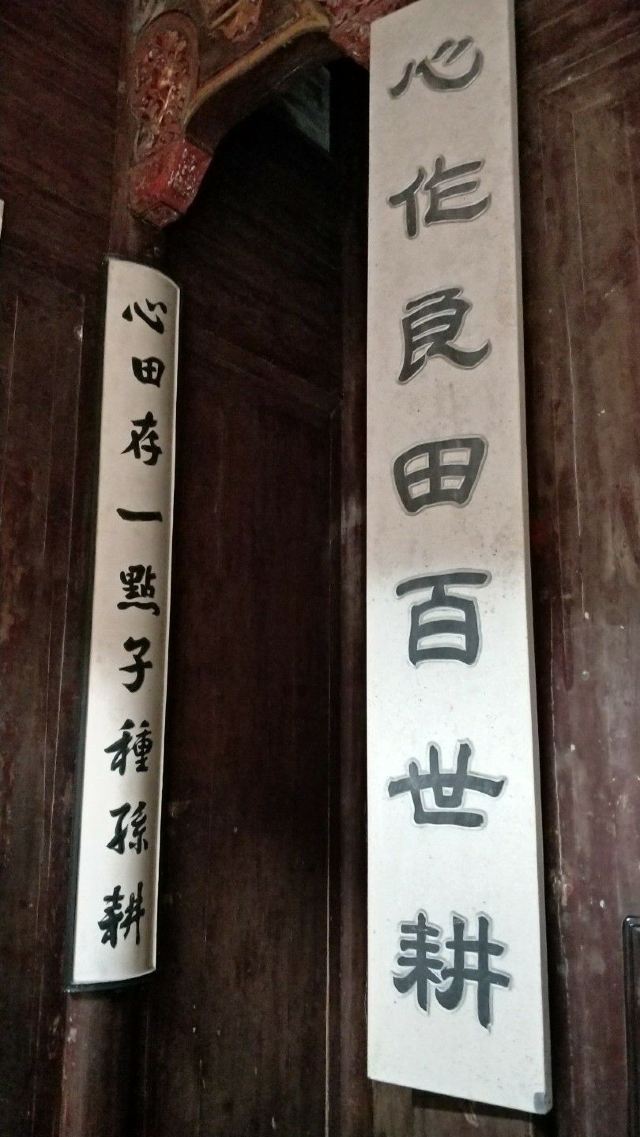 心作良田百世耕
心田存一點子種孫耕